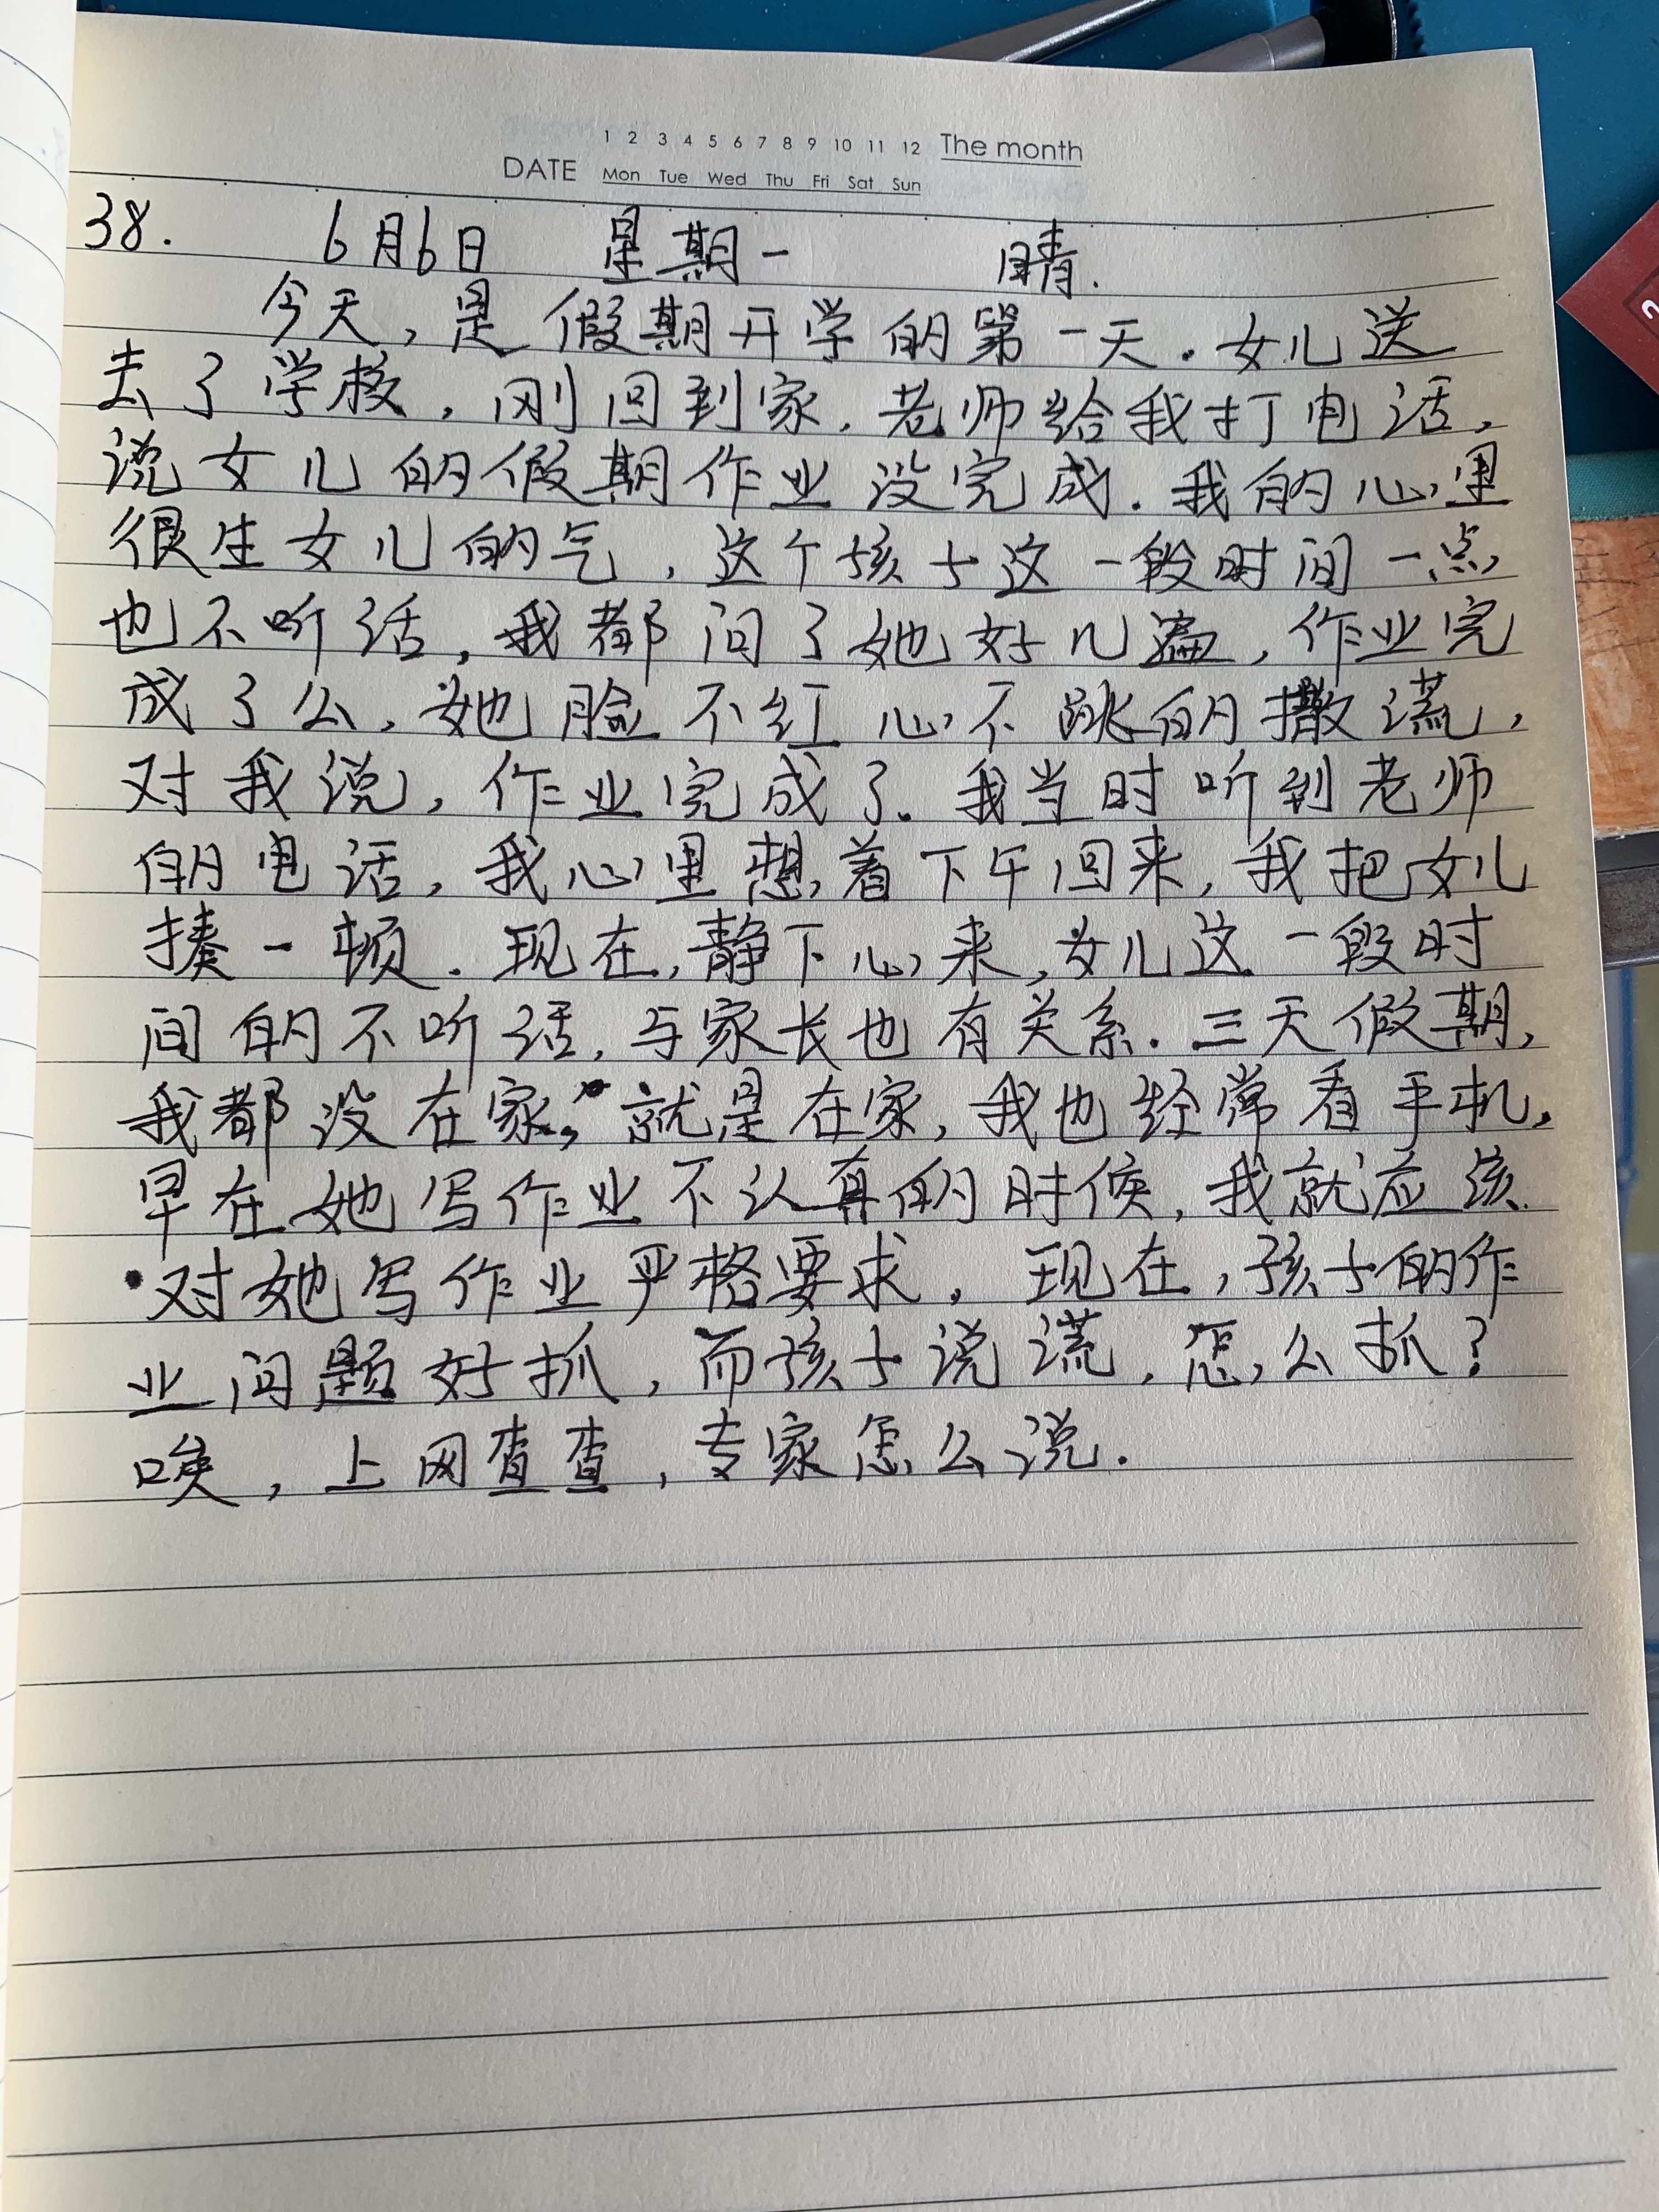 1 2 3 4 5 6 7 8 9 10 11 12 The month
DATE Mon Tue Wed Thu Fri Sat Sun
38. 6月6日 星期一 晴.
今天,是假期开学的第一天.女儿送
去了学校,刚回到家.老师给我打电话,
说女儿的假期作业没完成.我的心里
很生女儿的气,这个孩子这一段时间一点
也不听话,我都问了她好几遍,作业完
成了么,她脸不红心不跳的撒谎,
对我说,作业完成了.我当时听到老师
的电话,我心里想着下午回来,我把女儿
揍一顿.现在,静下心来,女儿这一段时
间的不听话,与家长也有关系.三天假期,
我都没在家,就是在家,我也经常看手机,
早在她写作业不认真的时候,我就应该
对她写作业严格要求.现在,孩子的作
业问题好抓,而孩子说谎,怎么抓?
唉,上网查查,专家怎么说.